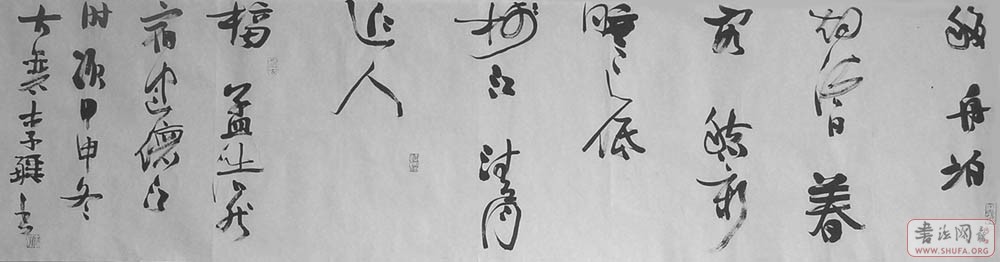 移舟泊
烟渚日暮
客愁新
旷天低
树江清月
近人
孟浩然
宿建德江
时甲申冬
李书
书法网
WWW.SHUFA.ORG